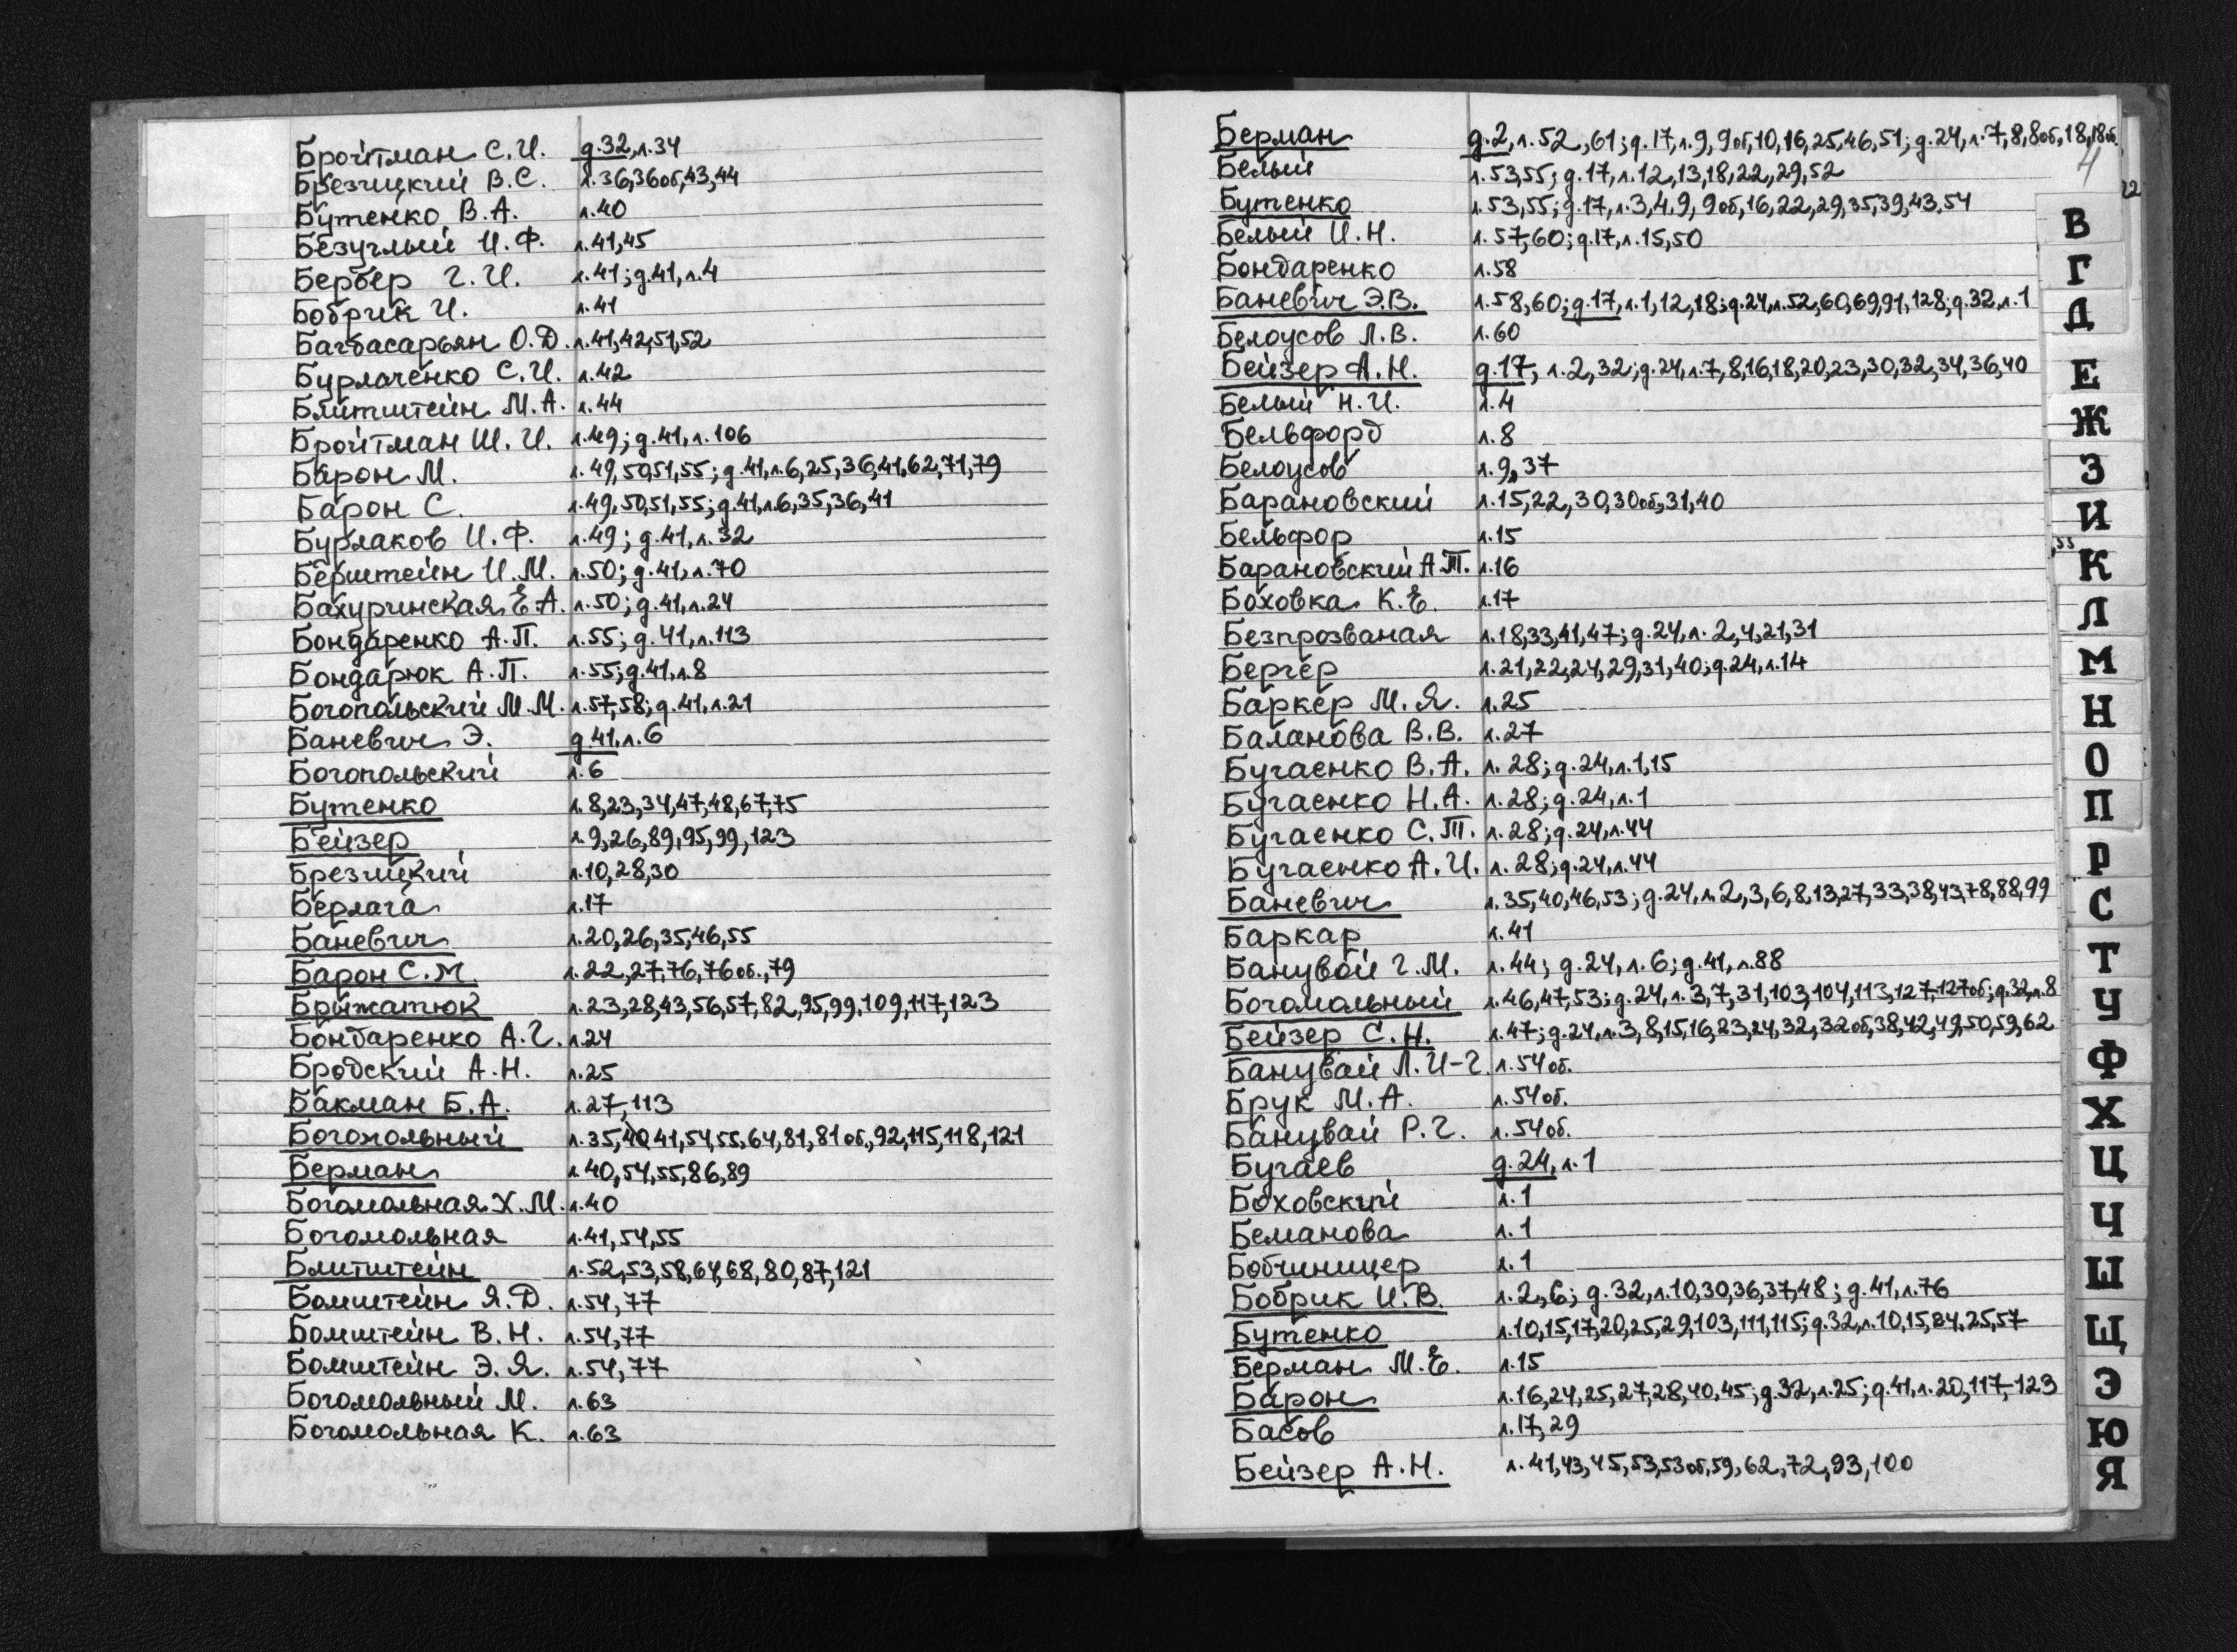 Бройтман С.И. д.32, л.34
Брезицкий В.С. л.36,36об,43,44
Бутенко В.А. л.40
Безуглый И.Ф. л.41,45
Бербер Г.И. л.41; д.41, л.4
Бобрик И. л.41
Багбасарьян О.Д. л.41,42,51,52
Бурлаченко С.И. л.42
Блитштейн М.А. л.44
Бройтман Ш.И. л.49; д.41, л.106
Барон М. л.49,50,51,55; д.41, л.6,25,36,41,62,71,79
Барон С. л.49,50,51,55; д.41, л.6,35,36,41
Бурлаков И.Ф. л.49; д.41, л.32
Берштейн И.М. л.50; д.41, л.70
Бахуринская Е.А. л.50; д.41, л.24
Бондаренко А.П. л.55; д.41, л.113
Бондарюк А.П. л.55; д.41, л.8
Богопольский М.М. л.57,58; д.41, л.21
Баневич Э. д.41, л.6
Богопольский л.6
Бутенко л.8,23,34,47,48,67,75
Бейзер л.9,26,89,95,99,123
Брезицкий л.10,28,30
Берлага л.17
Баневич л.20,26,35,46,55
Барон С.М. л.22,27,76,76об.,79
Брыжатюк л.23,28,43,56,57,82,95,99,109,117,123
Бондаренко А.Г. л.24
Бродский А.Н. л.25
Бакман Б.А. л.27,113
Богомольный л.35,40,41,54,55,64,81,81об.,92,115,118,121
Берман л.40,54,55,86,89
Богомольная Х.М. л.40
Богомольная л.41,54,55
Блитштейн л.52,53,58,64,68,80,87,121
Бомштейн Я.Д. л.54,77
Бомштейн В.Н. л.54,77
Бомштейн Э.Я. л.54,77
Богомольный М. л.63
Богомольная К. л.63
Берман д.2, л.52,61; д.17, л.9,9об,10,16,25,46,51; д.24, л.7,8,8об,18,18об.
4
22
Белый л.53,55; д.17, л.12,13,18,22,29,52
Бутенко л.53,55; д.17, л.3,4,9,9об,16,22,29,35,39,43,54
Белый И.Н. л.57,60; д.17, л.15,50
Бондаренко л.58
Баневич Э.В. л.58,60; д.17, л.1,12,18; д.24, л.52,60,69,91,128; д.32, л.1
Белоусов Л.В. л.60
Бейзер А.Н. д.17, л.2,32; д.24, л.7,8,16,18,20,23,30,32,34,36,40
Белый Н.И. л.4
Бельфорд л.8
Белоусов л.9,37
Барановский л.15,22,30,30об,31,40
Бельфор л.15
Барановский А.Т. л.16
Боховка К.Е. л.17
Безпрозваная л.18,33,41,47; д.24, л.2,4,21,31
Бергер л.21,22,24,29,31,40; д.24, л.14
Баркер М.Я. л.25
Баланова В.В. л.27
Бугаенко В.А. л.28; д.24, л.1,15
Бугаенко Н.А. л.28; д.24, л.1
Бугаенко С.Т. л.28; д.24, л.44
Бугаенко А.И. л.28; д.24, л.44
Баневич л.35,40,46,53; д.24, л.2,3,6,8,13,27,33,38,43,78,88,99
Баркар л.41
Банувой Г.М. л.44; д.24, л.6; д.41, л.88
Богомольный л.46,47,53; д.24, л.3,7,31,103,104,113,127,127об; д.32, л.8
Бейзер С.Н. л.47; д.24, л.3,8,15,16,23,24,32,32об,38,42,49,50,59,62
Банувай Л.И-Г. л.54об.
Брук М.А. л.54об.
Банувай Р.Г. л.54об.
Бугаев д.24, л.1
Боховский л.1
Беманова л.1
Бобчиницер л.1
Бобрик И.В. л.2,6; д.32, л.10,30,36,37,48; д.41, л.76
Бутенко л.10,15,17,20,25,29,103,111,115; д.32, л.10,15,24,25,57
Берман М.Е. л.15
Барон л.16,24,25,27,28,40,45; д.32, л.25; д.41, л.20,117,123
Басов л.17,29
Бейзер А.Н. л.41,43,45,53,53об,59,62,72,93,100
В
Г
Д
Е
Ж
З
И
К
Л
М
Н
О
П
Р
С
Т
У
Ф
Х
Ц
Ч
Ш
Щ
Э
Ю
Я